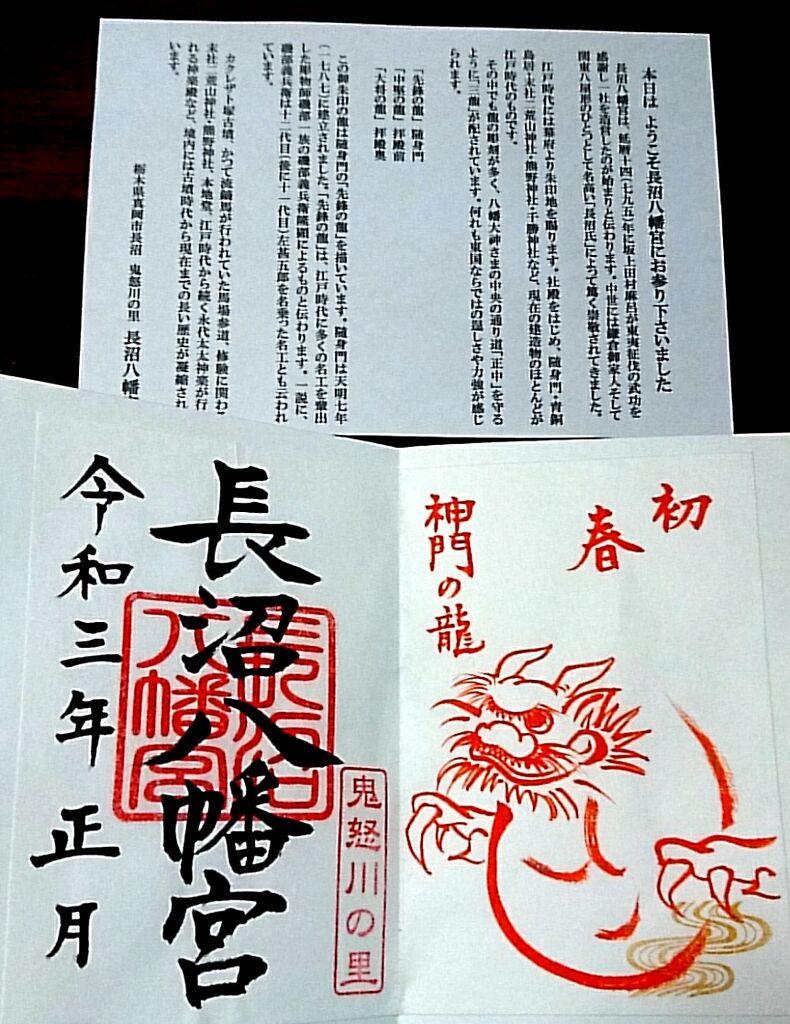 本日は ようこそ長沼八幡宮にお参り下さいました
長沼八幡宮は、延暦十四(七九五)年に坂上田村麻呂が東夷征伐の武功を
感謝し一社を造営したのが始まりと伝わります。中世には鎌倉御家人そして
関東八屋形のひとつとして名高い「長沼氏」によって篤く崇敬されてきました。
江戸時代には幕府より朱印地を賜ります。社殿をはじめ、随身門・青銅
鳥居・末社二荒山神社・熊野神社・千勝神社など、現在の建造物のほとんどが
江戸時代のものです。
その中でも龍の彫刻が多く、八幡大神さまの中央の通り道「正中」を守る
ように「三龍」が配されています。何れも東国ならではの逞しさや力強が感じ
られます。
「先鋒の龍」随身門
「中堅の龍」拝殿前
「大将の龍」拝殿奥
この御朱印の龍は随身門の「先鋒の龍」を描いています。随身門は天明七年
(一七八七)に建立されました。「先鋒の龍」は、江戸時代に多くの名工を輩出
した彫物師磯部一族の磯部義兵衛隆顕によるものと伝わります。一説に、
磯部義兵衛は十二代目(後に十一代目)左甚五郎を名乗った名工とも云われ
ています。
カクレザト塚古墳、かつて流鏑馬が行われていた馬場参道、修験に関わる
末社二荒山神社・熊野神社、本地堂、江戸時代から続く永代太太神楽が行
れる神楽殿など、境内には古墳時代から現在までの長い歴史が凝縮され
います。
栃木県真岡市長沼 鬼怒川の里 長沼八幡
初
春
神門の龍
長沼八幡宮
長沼
八幡宮
鬼怒川の里
令和三年 正月